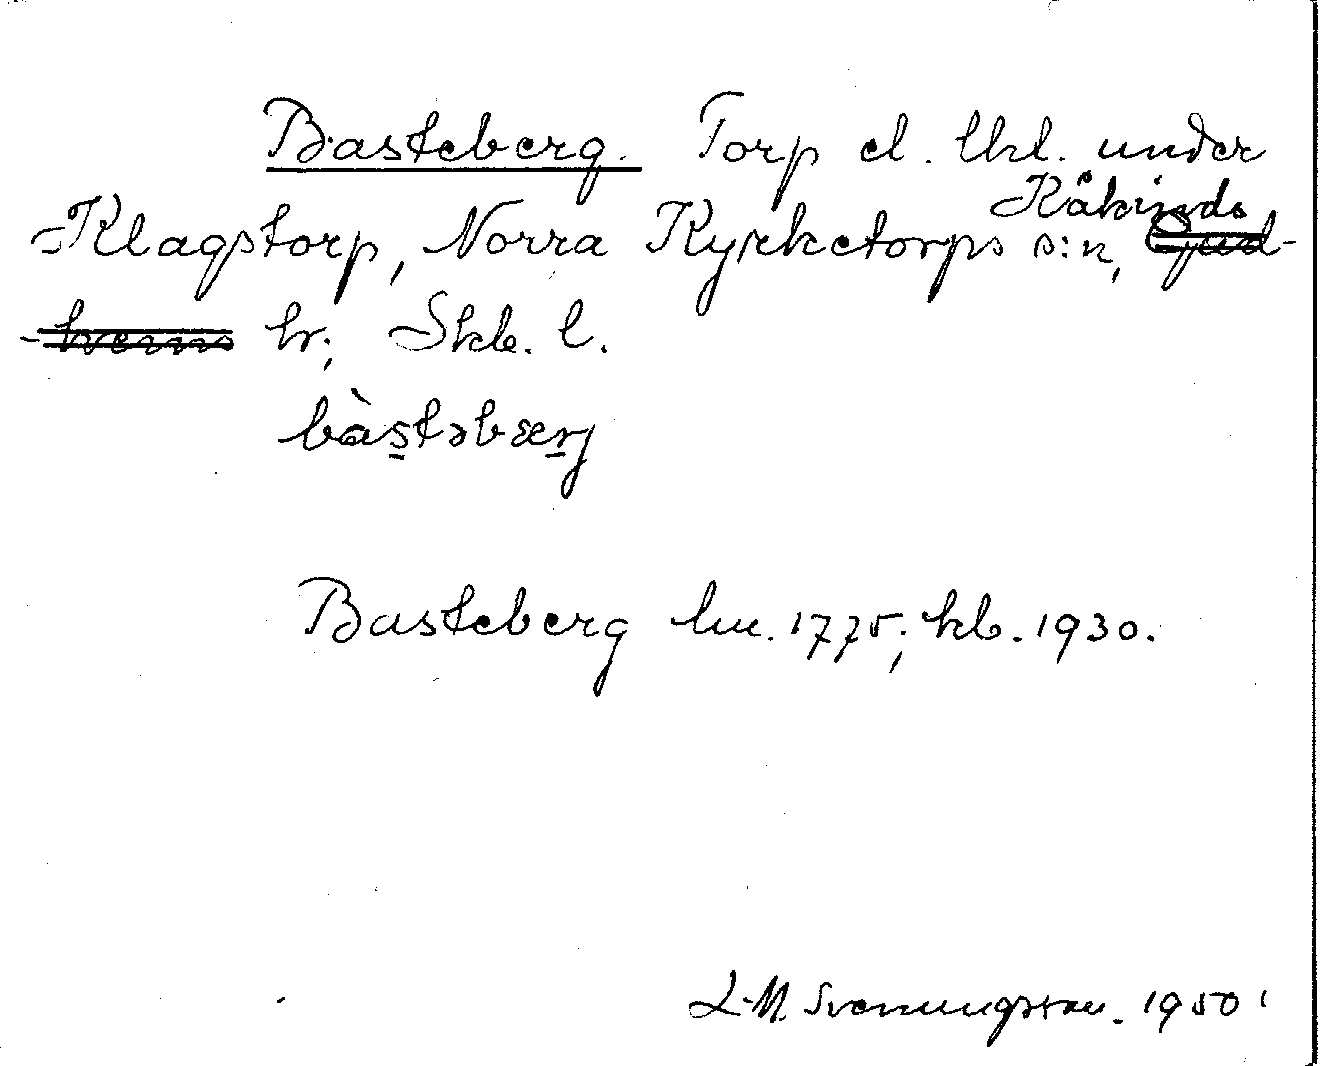 Basteberg. Torp el. lhl. under
Kåkinds
Klagstorp, Norra Kyrketorps s:n, Gud-
-hems hr; Skb. l.
bàstəbærj
Basteberg hm. 1775; kb. 1930.
L-M. Svenungsson. 1950